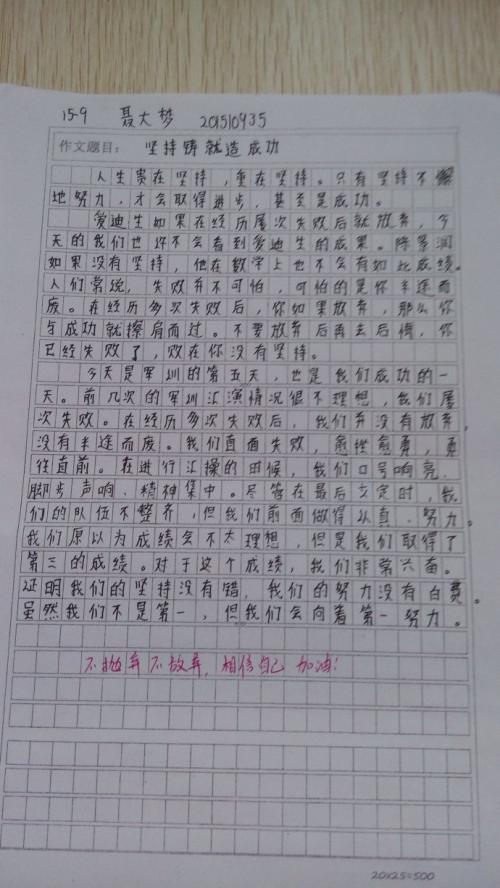 15-9 聂大梦 201510935
作文题目： 坚持铸就造成功
人生贵在坚持，重在坚持。只有坚持不懈
地努力，才会取得进步，甚至是成功。
爱迪生如果在经历屡次失败后就放弃，今
天的我们也许不会看到爱迪生的成果。陈景润
如果没有坚持，他在数学上也不会有如此成绩。
人们常说，失败并不可怕，可怕的是你半途而
废。在经历多次失败后，你如果放弃，那么你
与成功就擦肩而过。不要放弃后再去后悔，你
已经失败了，败在你没有坚持。
今天是军训的第五天，也是我们成功的一
天。前几次的军训汇演情况很不理想，我们屡
次失败。在经历多次失败后，我们并没有放弃，
没有半途而废。我们直面失败，愈挫愈勇，勇
往直前。在进行汇操的时候，我们口号响亮、
脚步声响、精神集中。尽管在最后立定时，我
们的队伍不整齐，但我们前面做得认真、努力。
我们原以为成绩会不太理想，但是我们取得了
第三的成绩。对于这个成绩，我们非常兴奋。
证明我们的坚持没有错，我们的努力没有白费。
虽然我们不是第一，但我们会向着第一努力。
不抛弃不放弃，相信自己 加油！
20x25=500